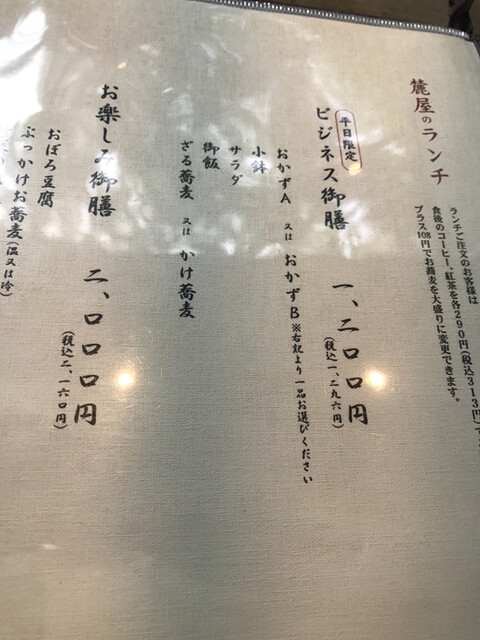 麓屋のランチ
ランチご注文のお客様は
食後のコーヒー、紅茶を各290円(税込313円)で
プラス108円でお蕎麦を大盛りに変更できます。
平日限定
ビジネス御膳 一、二〇〇円
(税込一、二九六円)
おかずA 又は おかずB ※右記より一品お選びください
小鉢
サラダ
御飯
ざる蕎麦 又は かけ蕎麦
お楽しみ御膳 二、〇〇〇円
(税込二、一六〇円)
おぼろ豆腐
ぶっかけお蕎麦(温又は冷)